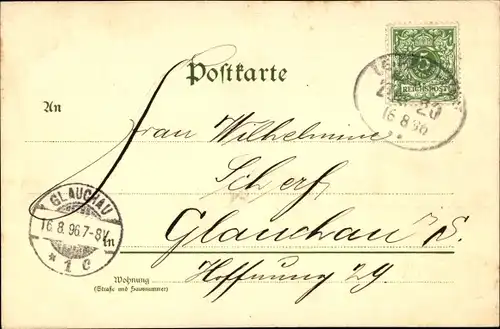 Postkarte
5
REICHSPOST
20
16 8 96
An
Frau Wilhelmine
Scherf
Glauchau i/S.
GLAUCHAU
16.8.96.7-8V.
* 1 c
in
Hoffnung 29.
Wohnung
(Straße und Hausnummer)